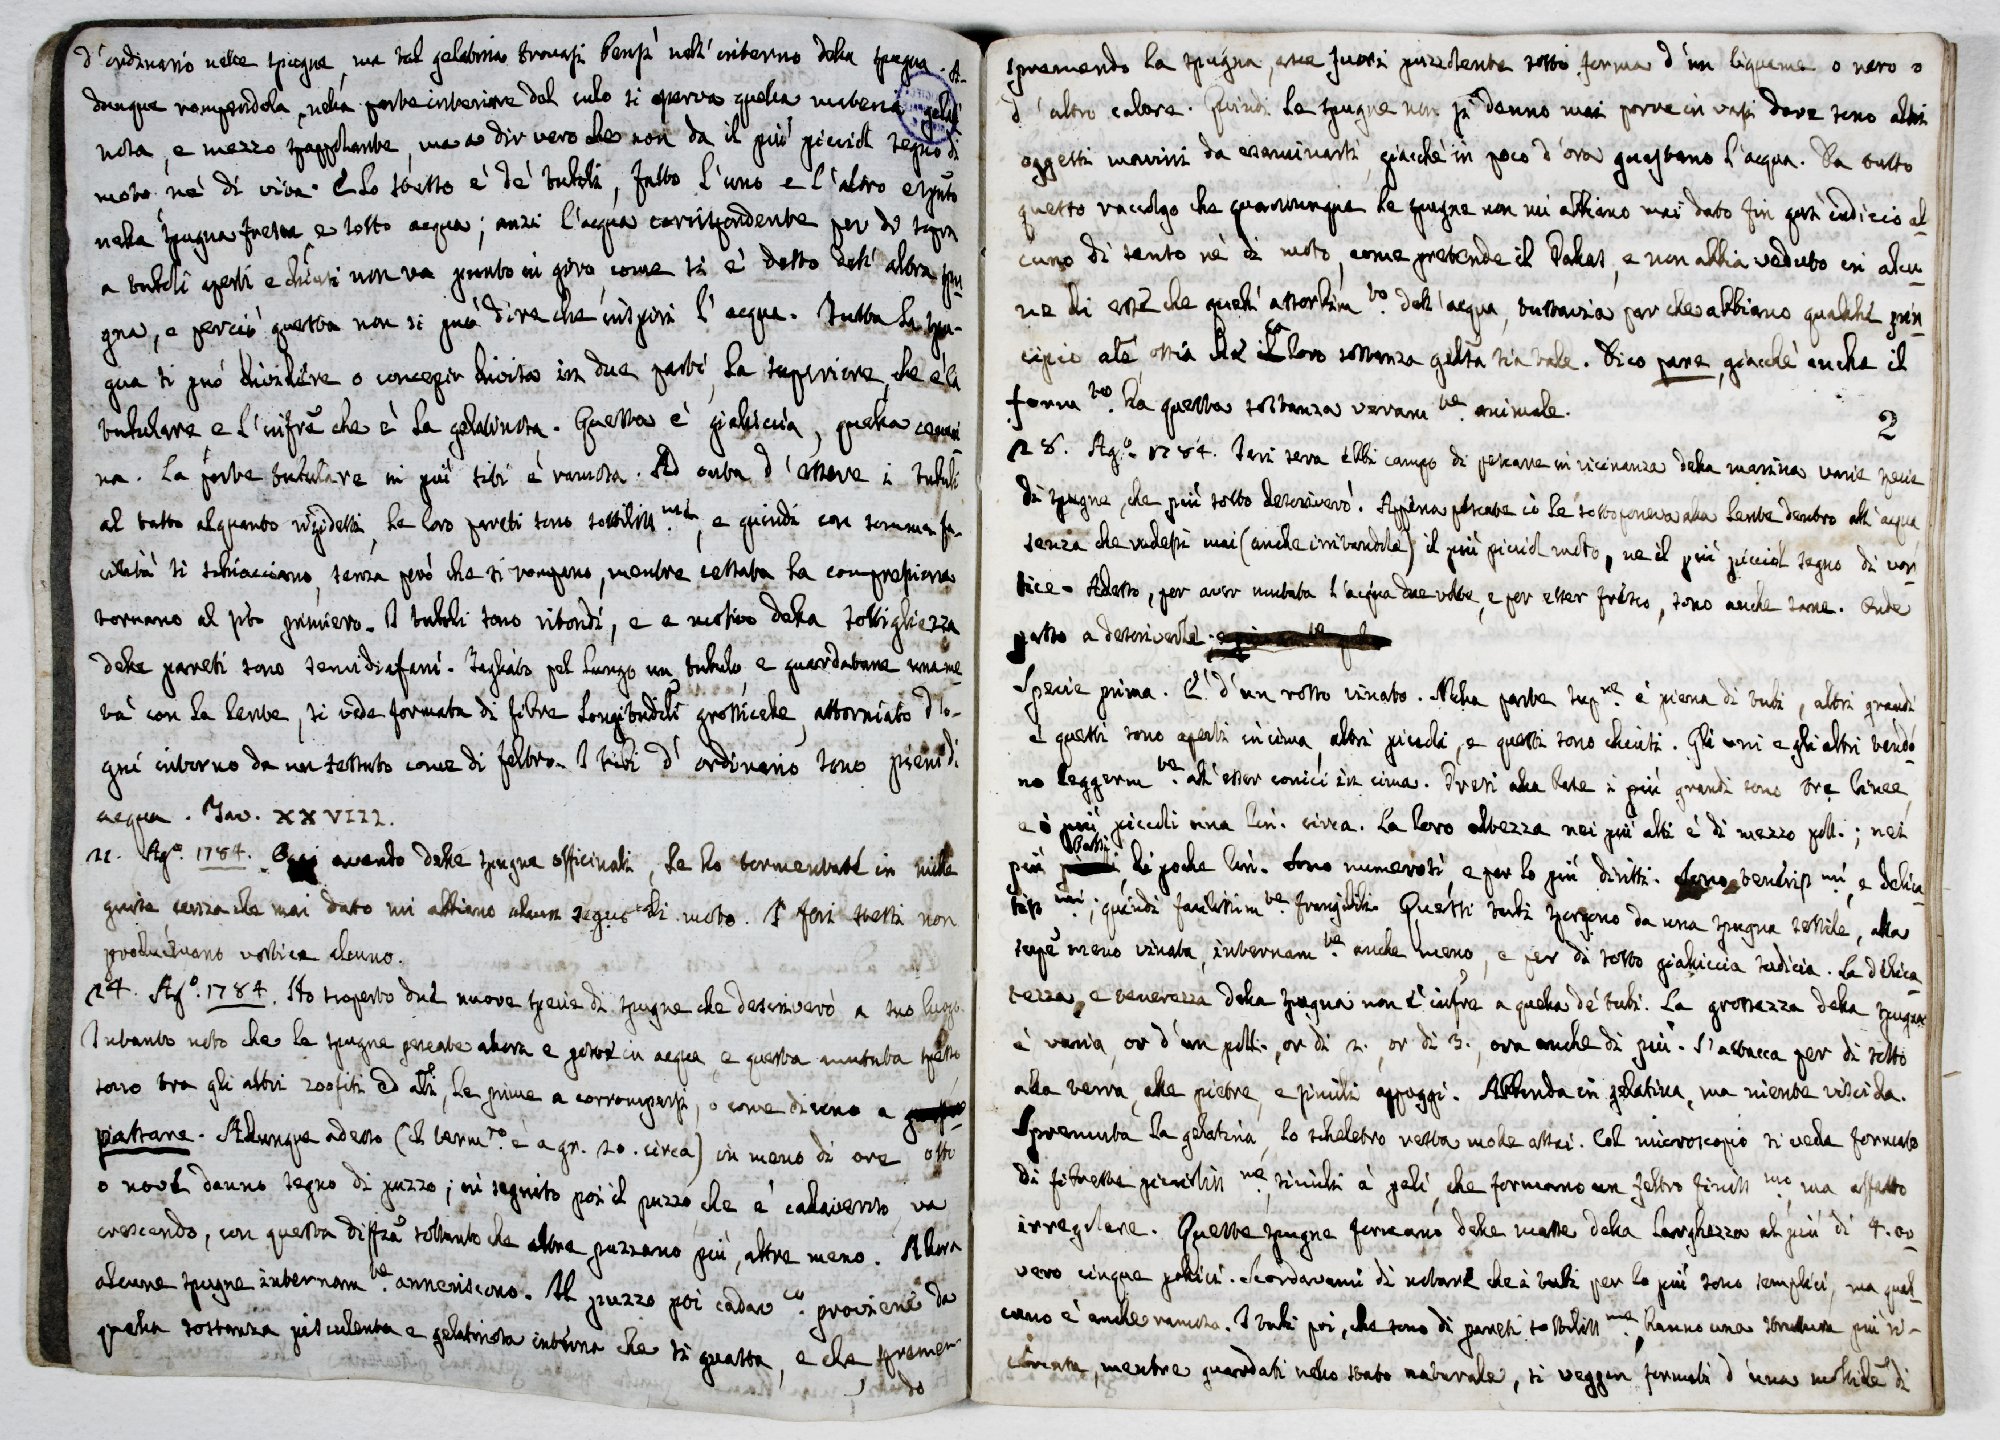 d'ordinario nelle spugne, ma tal gelatina trovasi bensì nell'interno della spugna. A-
dunque rompendola, nella parte interiore del culo si osserva quella materia gelati
nosa, e mezzo spappolante, ma a dir vero che non da il più picciol segno di
moto nè di vita. E lo stesso è de' tuboli, fatto l'uno e l'altro esptô
nella spugna fresca, e sotto acqua; anzi l'acqua corrispondente per di sopra
a tuboli aperti e chiusi non va punto in giro, come si è detto dell'altra spu-
gna, e perciò questa non si può dire che inspiri l'acqua. Tutta la spu-
gna si può dividere o concepir divisa in due parti, la superiore, che è la
tubulare e l'infrê che è la gelatinosa. Questa è gialiccia, quella
na. La parte tubulare in più siti è ramosa. Ad onta d'essere i tuboli
al tatto alquanto rigidetti, le loro pareti sono sottiliss.me, e quindi con somma fa-
cilità si schiacciano, senza però che si rompano, mentre cessata la compressione
tornano al pto primiero. I tuboli sono ritondi, e a motivo della sottigliezza
delle pareti sono semidiafani. Tagliato pel lungo un tubulo, e guardatane una me-
tà con la lente, si vede formata di fibre longitudili grossicelle, attorniato d'o-
gni intorno da un tessuto come di feltro. I tubi d'ordinario sono pieni di
acqua. Tav. XXVIII.
21. Ago. 1784. Oggi avendo delle spugne officinali, le ho tormentate in mille
guise senza che mai dato mi abbiano alcun segno di moto. I fori stessi non
producevano vortice alcuno.
24. Ago. 1784. Ho scoperto due nuove specie di spugne che descriverò a suo luogo.
Intanto noto che le spugne pescate allora e poste in acqua, e questa mutata spesso
sono tra gli altri zoofiti ed ali, le prime a corrompersi, o come dicono a
piastrare. Adunque adesso (il term.ro è a gr. 20. circa) in meno di ore otto
o nove danno segno di puzzo; in seguito poi il puzzo che è cadaveroso, va
crescendo, con questa diffzâ soltanto che altre puzzano più, altre meno. Allora
alcune spugne internam.te anneriscono. Il puzzo poi cadav.co proviene da
quella sostanza pisculenta e gelatinosa interna che si guasta, e che spremen-
do
spremendo la spugna, esce fuori puzzolente sotto forma d'un liquame o nero o
d'altro colore. Quindi le spugne non si denno mai porre in vasi dove sono altri
oggetti marini da esaminarsi, giacchè in poco d'ora guastano l'acqua. Da tutto
questo raccolgo che quantunque le spugne non mi abbiano mai dato fin qui indicio al-
cuno di senso nè di moto, come pretende il Pallas, e non abbia veduto in alcu-
ne di esse che quell'assorbim.to dell'acqua, tuttavia par che abbiano qualche prin-
cipio ale, ossia che la loro sostanza gelosa sia tale. Dico pare, giacchè anche il
form.to ha questa sostanza veram.te animale.
2
28. Ago. 1784. Ieri sera ebbi campo di pescare in vicinanza della marina varie specie
di spugne, che più sotto descriverò. Appena pescate io le sottoponeva alla lente dentro all'acqua
senza che vedessi mai (anche irritandole) il più picciol moto, ne il più picciol segno di vor-
tice. Adesso, per aver mutata l'acqua due volte, e per esser fresco, sono anche sane. Onde
passo a descriverle.
Specie prima. E' d'un rosso vinato. Nella parte sup.re è piena di tubi, altri grandi
e questi sono aperti in cima, altri piccoli, e questi sono chiusi. Gli uni e gli altri tendo-
no leggerm.te all'esser conici in cima. Presi alla base i più grandi sono tre linee,
e i più piccoli una lin. circa. La loro altezza nei più alti è di mezzo poll.; nei
più bassi di poche lin. Sono numerosi e per lo più diritti. Sono teneriss.mi, e delica-
tiss.mi; quindi facilissim.te frangibili. Questi tubi sporgono da una spugna sessile, alla
supê meno vinata, internam.te anche meno, e per di sotto gialiccia sudicia. La delica-
tezza, e tenerezza della spugna non è infre a quella de' tubi. La grossezza della spugna
è varia, or d'un poll., or di 2., or di 3., ora anche di più. S'attacca per di sotto
alla terra, alle pietre, e simili appoggi. Abbonda in gelatina, ma niente viscida.
Spremuta la gelatina, lo scheletro resta molle assai. Col microscopio si vede formato
di fibrette picciliss.me, simili a peli, che formano un feltro finiss.mo ma affatto
irregolare. Queste spugne formano delle masse della larghezza al più di 4. ov-
vero cinque pollici. Scordavami di notare che i tubi per lo più sono semplici, ma qual-
cuno è anche ramoso. I tubi poi, che sono di pareti sottiliss.me, hanno una struttura più
mentre guardati nello stato naturale, si veggon formati d'una di